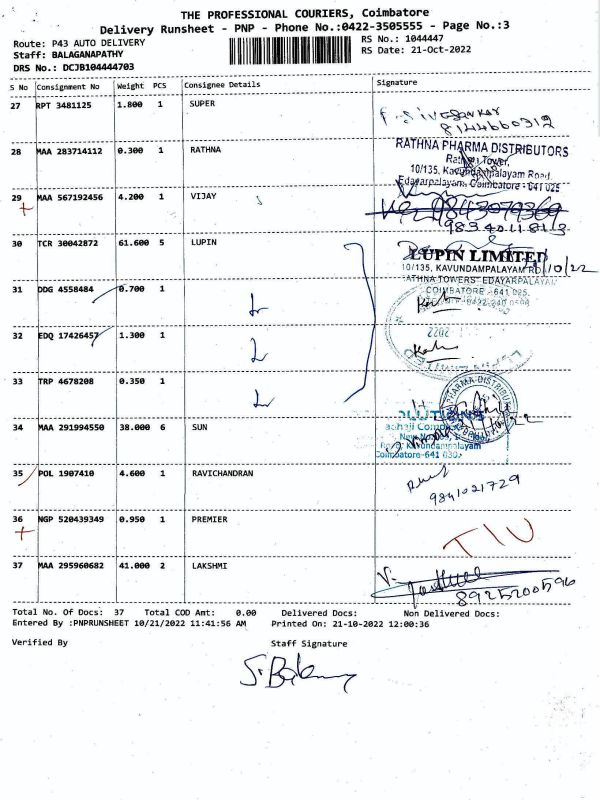 THE PROFESSIONAL COURIERS, Coimbatore
Delivery Runsheet - PNP - Phone No.:0422-3505555 - Page No.:3
Route: P43 AUTO DELIVERY RS No.: 1044447
Staff: BALAGANAPATHY RS Date: 21-Oct-2022
DRS No.: DCJB104444703
S No Consignment No Weight PCS Consignee Details Signature
27 RPT 3481125 1.800 1 SUPER
8144660312
28 MAA 283714112 0.300 1 RATHNA RATHNA PHARMA DISTRIBUTORS
Rathna Tower,
10/135, Kavundampalayam Road,
Edayarpalayam, Coimbatore - 641 025
29 MAA 567192456 4.200 1 VIJAY
9843079369
9834011813
30 TCR 30042872 61.600 5 LUPIN LUPIN LIMITED
10/135, KAVUNDAMPALAYAM RD. /10/22
RATHNA TOWERS EDAYARPALAYAM
31 DDG 4558484 0.700 1 COIMBATORE - 641 025.
32 EDQ 17426457 1.300 1
33 TRP 4678208 0.350 1 PHARMA DISTRIBUT
34 MAA 291994550 38.000 6 SUN
Coimbatore-641 030.
35 POL 1907410 4.600 1 RAVICHANDRAN
9841021729
36 NGP 520439349 0.950 1 PREMIER
37 MAA 295960682 41.000 2 LAKSHMI
8925200596
Total No. Of Docs: 37 Total COD Amt: 0.00 Delivered Docs: Non Delivered Docs:
Entered By :PNPRUNSHEET 10/21/2022 11:41:56 AM Printed On: 21-10-2022 12:00:36
Verified By Staff Signature